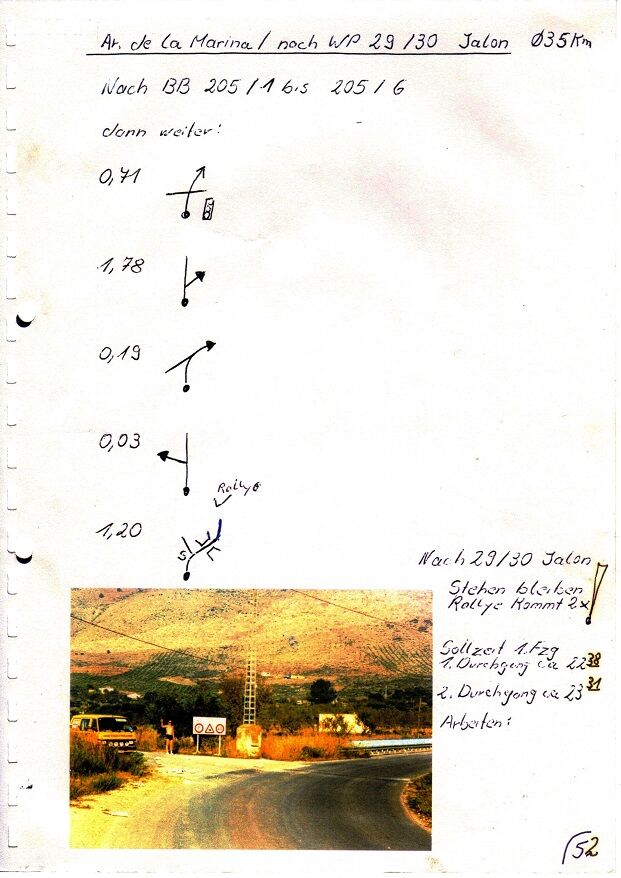 Av. de la Marina / nach WP 29/30 Jalon Ø35Km
Nach BB 205/1 bis 205/6
dann weiter:
0,71
1,78
0,19
0,03
Rallye
1,20
S
Nach 29/30 Jalon
Stehen bleiben
Rallye Kommt 2x
Sollzeit 1. Fzg
1. Durchgang ca 22 38
2. Durchgang ca 23 31
Arbeiten:
52